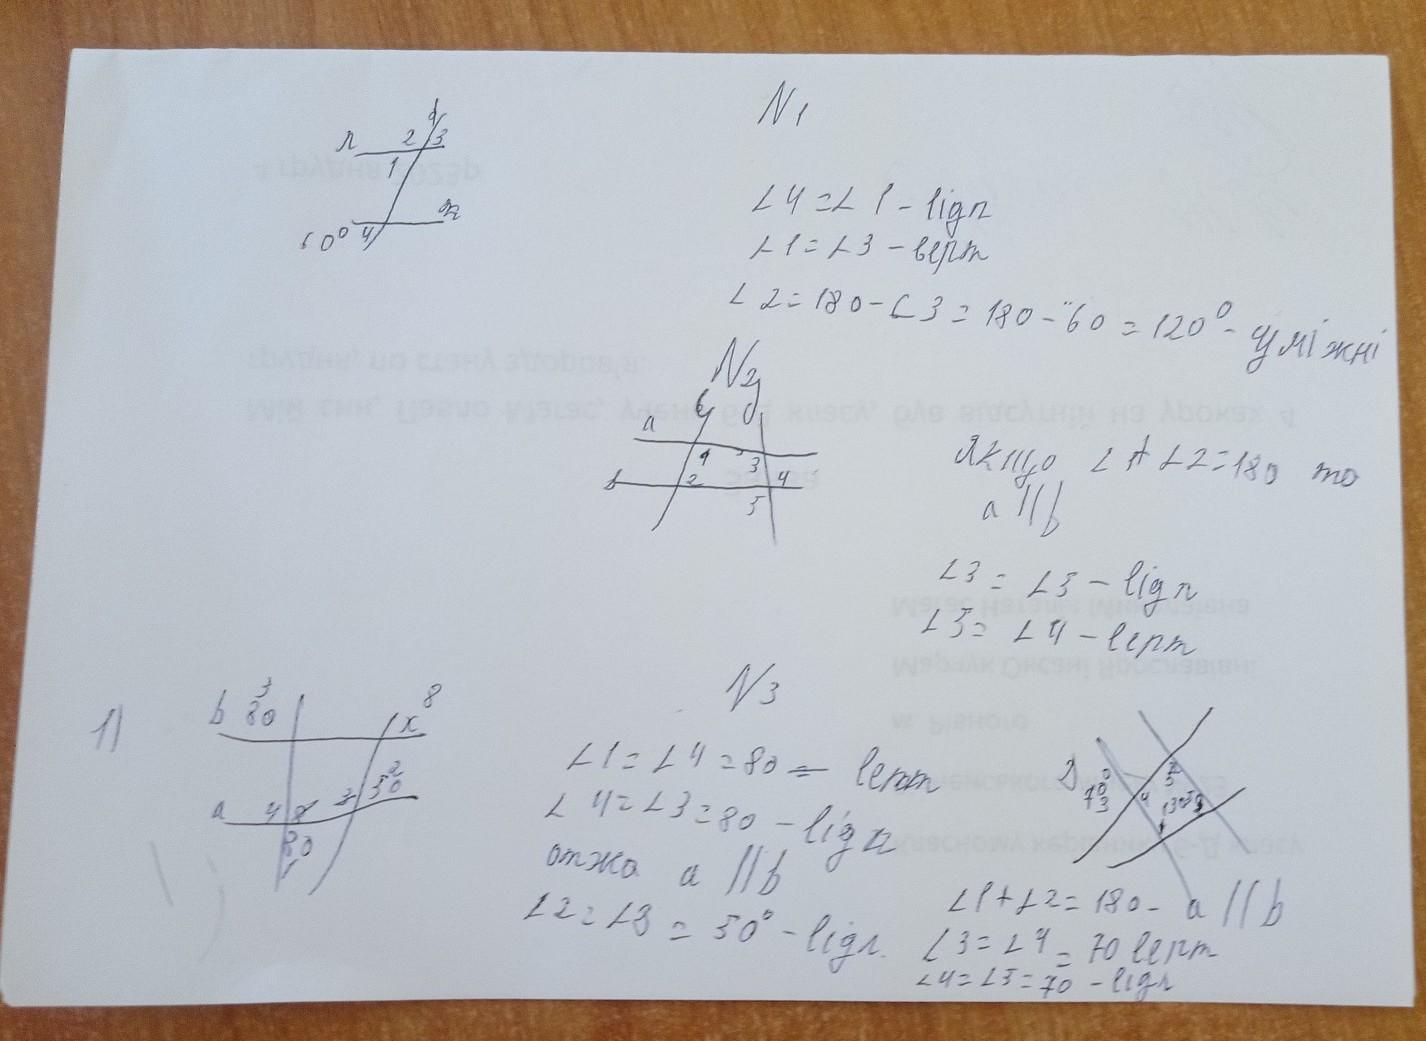 N1
∠4 = ∠1 - відп
∠1 = ∠3 - верт
∠2 = 180 - ∠3 = 180 - 60 = 120° - суміжні
n 2 3
1
m
60° 4
N2
a
1 3
b 2 4
5
Якщо ∠1+∠2=180 то
a || b
∠3 = ∠5 - відп
∠5 = ∠4 - верт
N3
1)
b 3 80 x 8
a 4 50 2
80
∠1 = ∠4 = 80 = верт
∠4 = ∠3 = 80 - відп
отже a || b
∠2 = ∠3 = 50° - відп.
2)
70 3 4 2 5 1
∠1+∠2=180 - a || b
∠3 = ∠4 = 70 верт
∠4 = ∠5 = 70 - відп